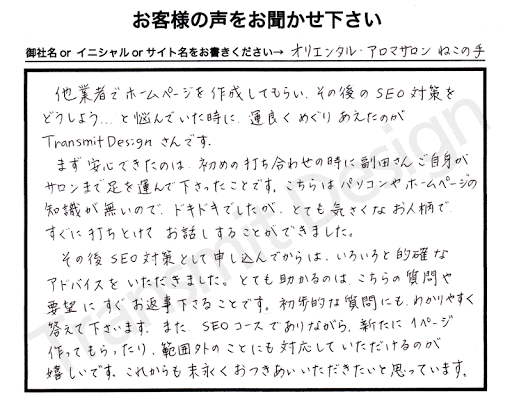 お客様の声をお聞かせ下さい
御社名 or イニシャル or サイト名をお書きください→ オリエンタル・アロマサロン ねこの手
他業者でホームページを作成してもらい、その後のSEO対策を
どうしよう…と悩んでいた時に、運良くめぐりあえたのが
TransmitDesignさんです。
まず安心できたのは、初めの打ち合わせの時に副田さんご自身が
サロンまで足を運んで下さったことです。こちらはパソコンやホームページの
知識が無いので、ドキドキでしたが、とても気さくなお人柄で、
すぐに打ちとけてお話しすることができました。
その後SEO対策として申し込んでからは、いろいろと的確な
アドバイスをいただきました。とても助かるのは、こちらの質問や
要望にすぐお返事下さることです。初歩的な質問にも、わかりやすく
答えて下さいます。また、SEOコースでありながら、新たに1ページ
作ってもらったり、範囲外のことにも対応していただけるのが
嬉しいです。これからも末永くおつきあいいただきたいと思っています。
Transmit Design